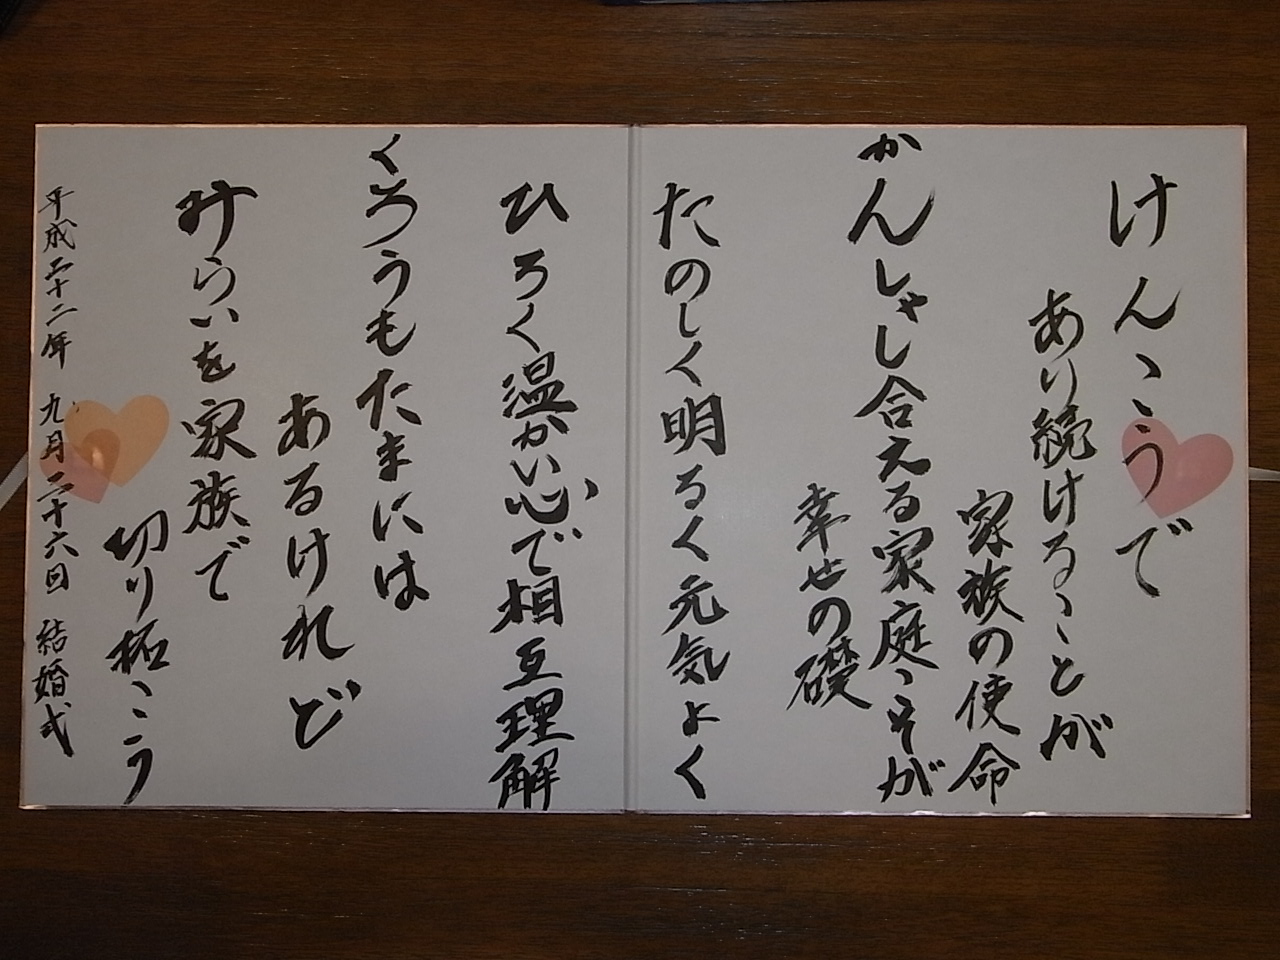 けんこうで
あり続けることが
家族の使命
かんしゃし合える家庭こそが
幸せの礎
たのしく明るく元気よく
ひろく温かい心で相互理解
くろうもたまには
あるけれど
みらいを家族で
切り拓こう
平成二十二年 九月二十六回 結婚式